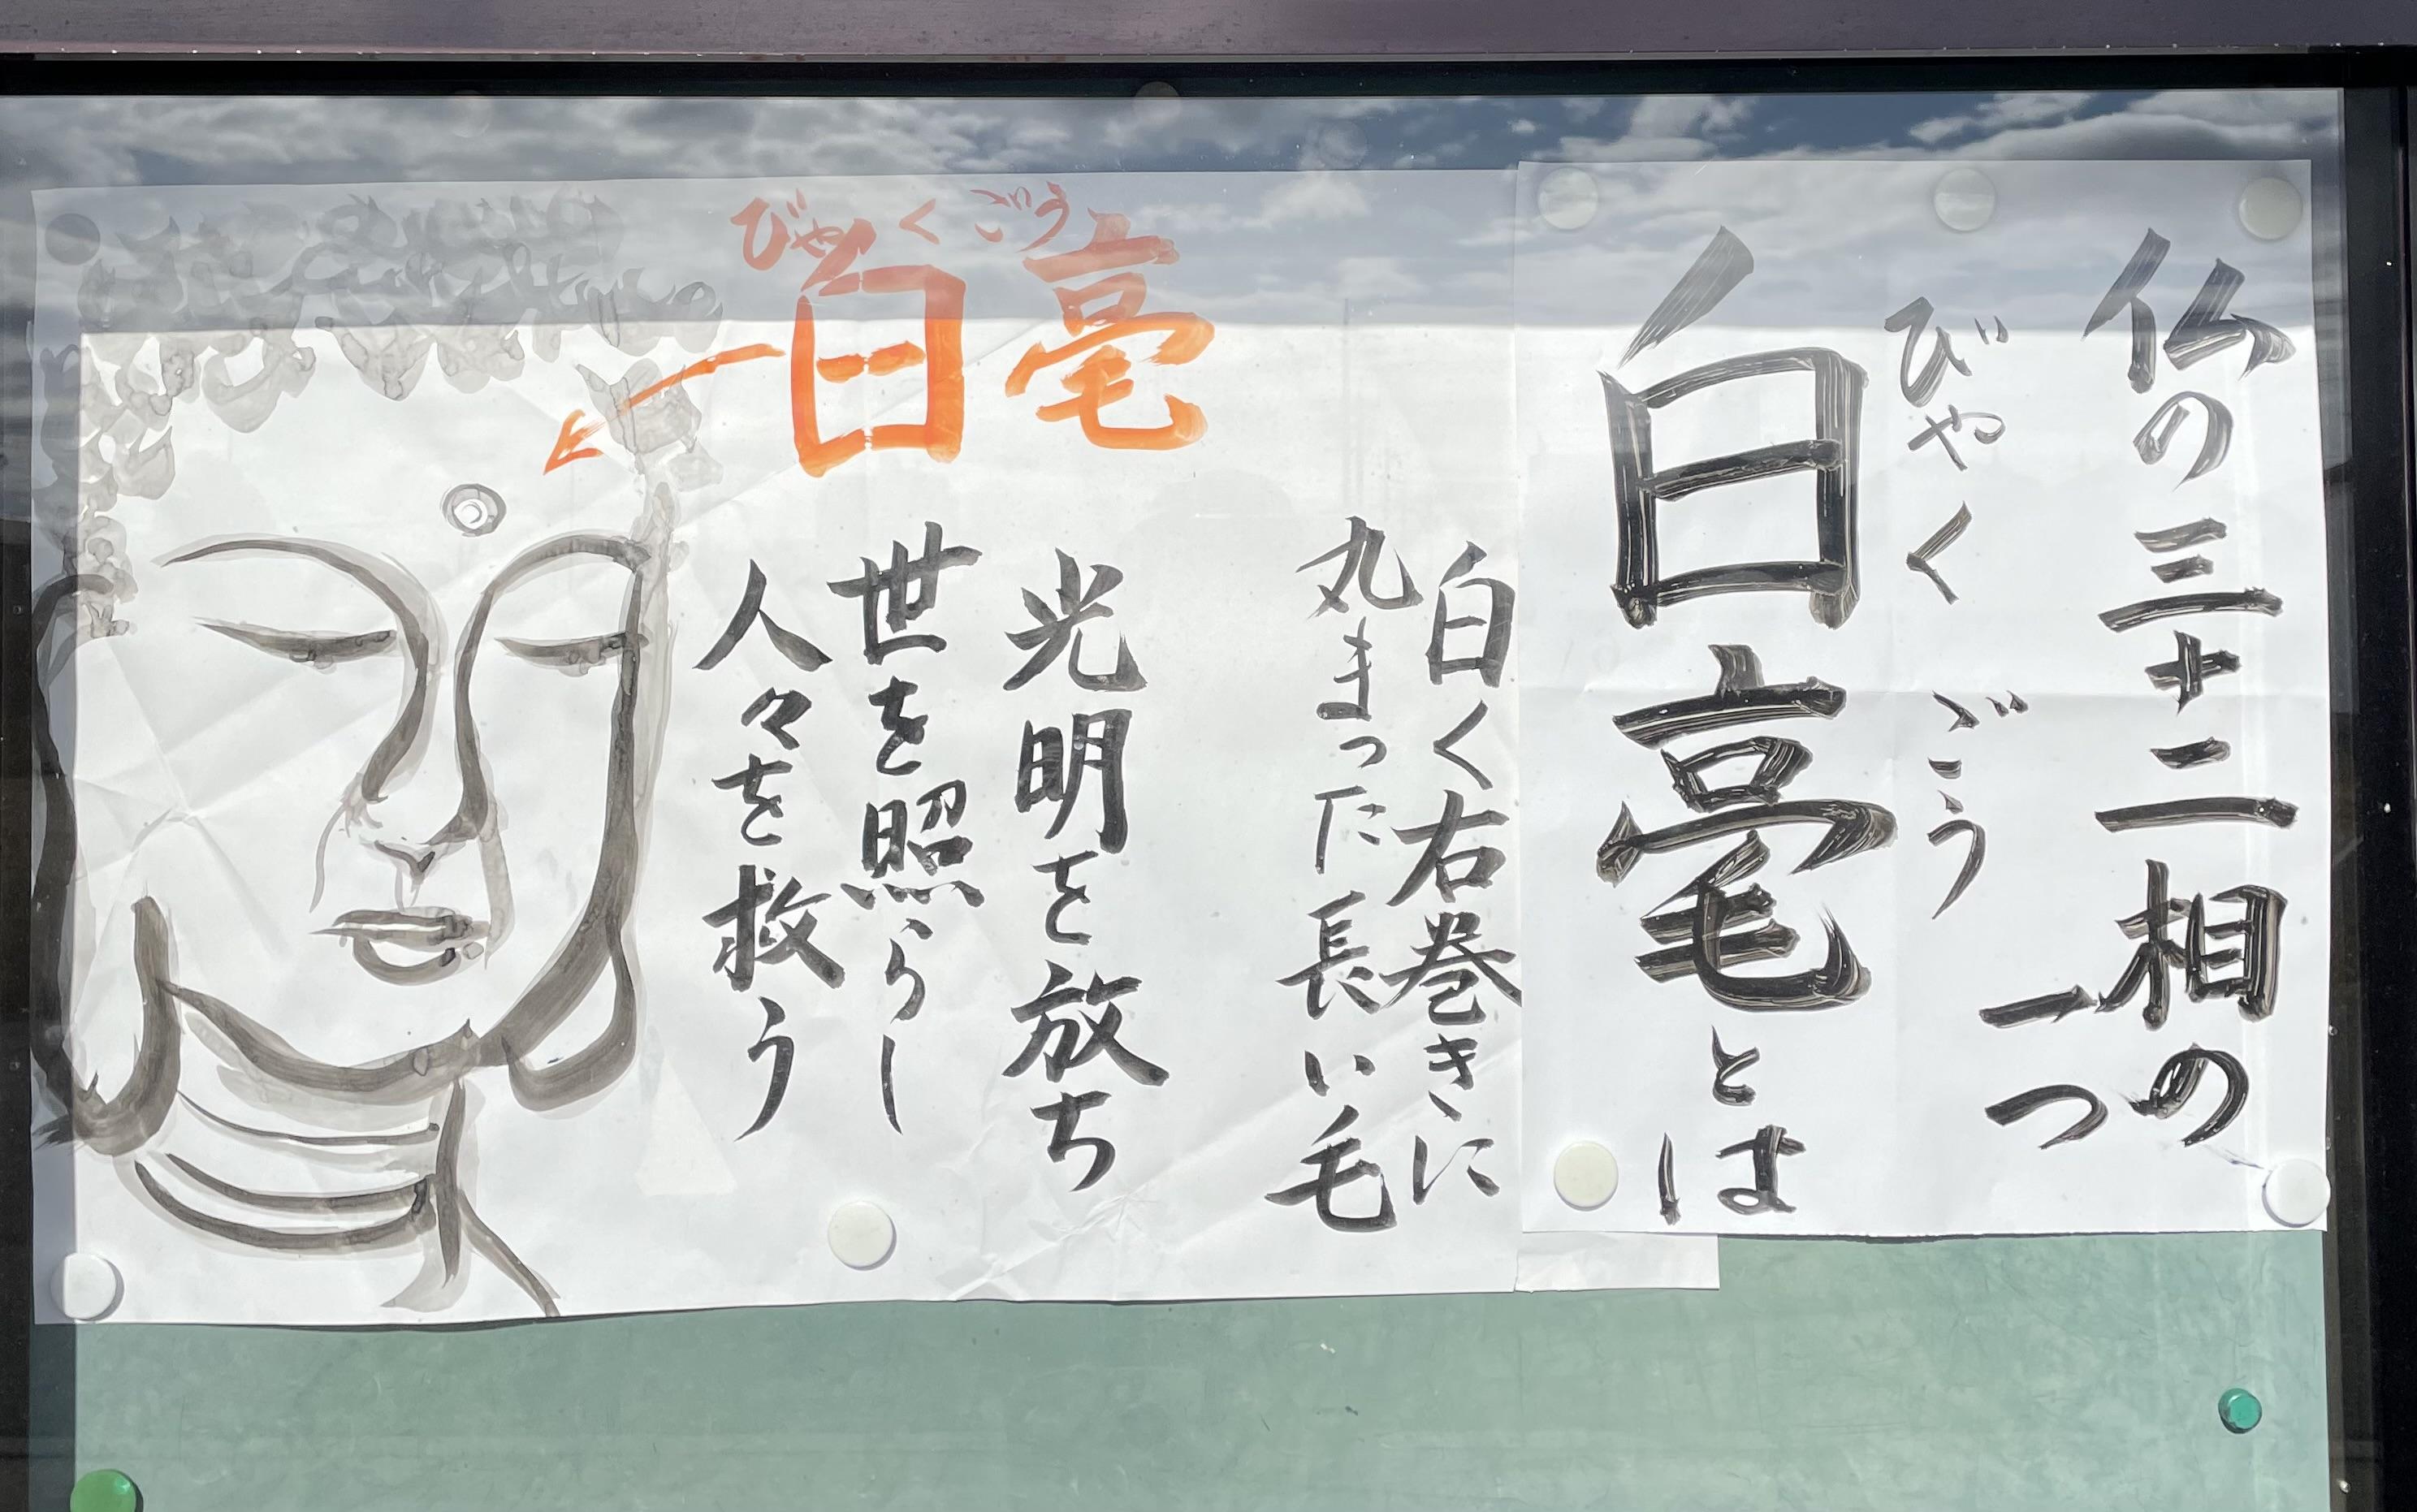 仏の三十二相の
一つ
びゃくごう
白毫とは
白く右巻きに
丸まった長い毛
光明を放ち
世を照らし
人々を救う
びゃくごう
白毫